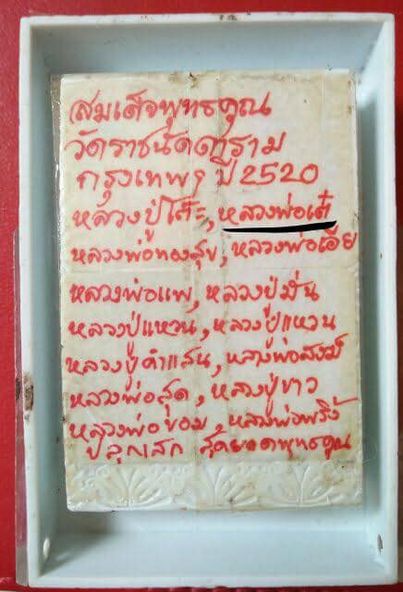 สมเด็จพุทธคุณ
วัดราชนัดดาราม
กรุงเทพฯ ปี 2520
หลวงปู่โต๊ะ, หลวงพ่อเต๋
หลวงพ่อทองสุข, หลวงพ่อเอีย
หลวงพ่อแพ, หลวงปู่มั่น
หลวงปู่แหวน, หลวงปู่แหวน
หลวงปู่คำแสน, หลวงพ่อสงฆ์
หลวงพ่อสุด, หลวงปู่ขาว
หลวงพ่อขอม, หลวงพ่อพริ้ง
ปลุกเสก สุดยอดพุทธคุณ